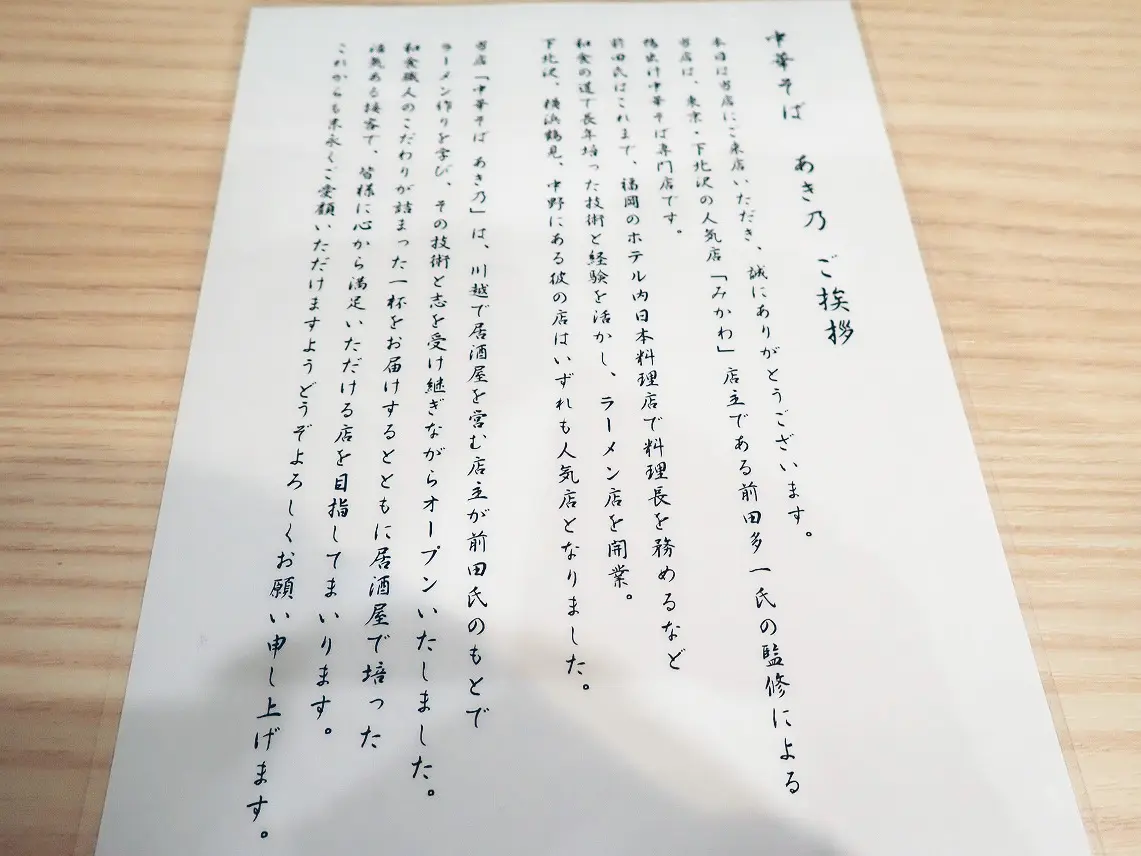 中華そば あき乃 ご挨拶
本日は当店にご来店いただき、誠にありがとうございます。
当店は、東京・下北沢の人気店「みかわ」店主である前田多一氏の監修による
鶏出汁中華そば専門店です。
前田氏はこれまで、福岡のホテル内日本料理店で料理長を務めるなど
和食の道で長年培った技術と経験を活かし、ラーメン店を開業。
下北沢、横浜鶴見、中野にある彼の店はいずれも人気店となりました。
当店「中華そば あき乃」は、川越で居酒屋を営む店主が前田氏のもとで
ラーメン作りを学び、その技術と志を受け継ぎながらオープンいたしました。
和食職人のこだわりが詰まった一杯をお届けするとともに居酒屋で培った
活気ある接客で、皆様に心から満足いただける店を目指してまいります。
これからも末永くご愛顧いただけますようどうぞよろしくお願い申し上げます。